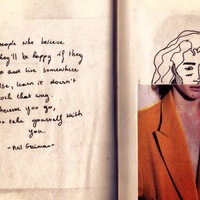 people who believe
they'll be happy if they
go and live somewhere
else, learn it doesn't
work that way.
wherever you go,
you take yourself with
you.
- Neil Gaiman -